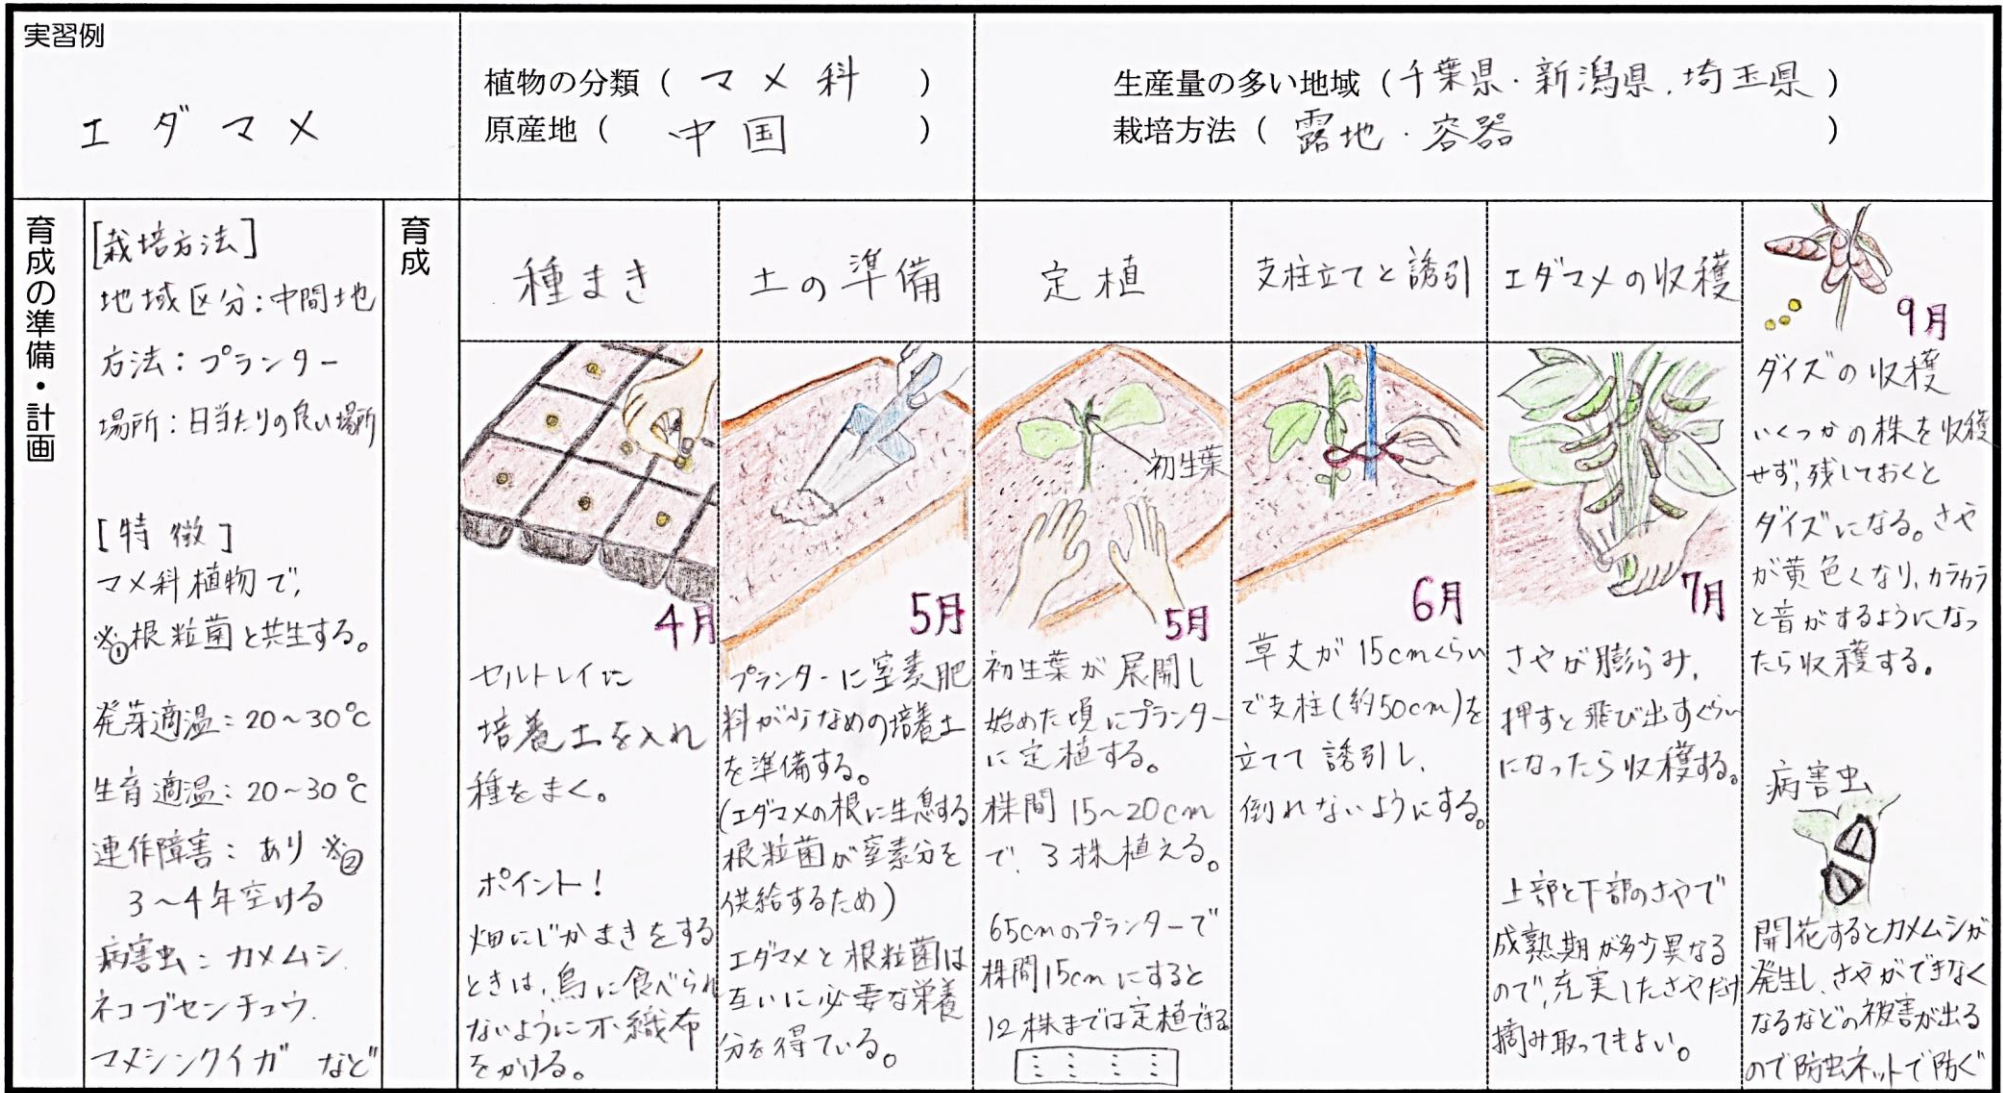 実習例
エダマメ
植物の分類（ マメ科 ）
原産地（ 中国 ）
生産量の多い地域（千葉県・新潟県.埼玉県）
栽培方法（ 露地・容器 ）
育成の準備・計画
[栽培方法]
地域区分：中間地
方法：プランター
場所：日当たりの良い場所
[特徴]
マメ科植物で,
※①根粒菌と共生する。
発芽適温：20～30℃
生育適温：20～30℃
連作障害：あり ※②
3～4年空ける
病害虫：カメムシ.
ネコブセンチュウ.
マメシンクイガ など
育成
種まき
4月
セルトレイに
培養土を入れ
種をまく。
ポイント！
畑にじかまきをする
ときは,鳥に食べられ
ないように不織布
をかける。
土の準備
5月
プランターに窒素肥
料が少なめの培養土
を準備する。
(エダマメの根に生息する
根粒菌が窒素分を
供給するため)
エダマメと根粒菌は
互いに必要な栄養
分を得ている。
定植
初生葉
5月
初生葉が展開し
始めた頃にプランター
に定植する。
株間15～20cm
で、3株植える。
65cmのプランターで
株間15cmにすると
12株までは定植できる
支柱立てと誘引
6月
草丈が15cmくらい
で支柱(約50cm)を
立てて誘引し、
倒れないようにする。
エダマメの収穫
7月
さやが膨らみ,
押すと飛び出すぐらい
になったら収穫する。
上部と下部のさやで
成熟期が多少異なる
ので,充実したさやだけ
摘み取ってもよい。
9月
ダイズの収穫
いくつかの株を収穫
せず,残しておくと
ダイズになる。さや
が黄色くなり,カラカラ
と音がするようになっ
たら収穫する。
病害虫
開花するとカメムシが
発生し、さやができなく
なるなどの被害が出る
ので防虫ネットで防ぐ